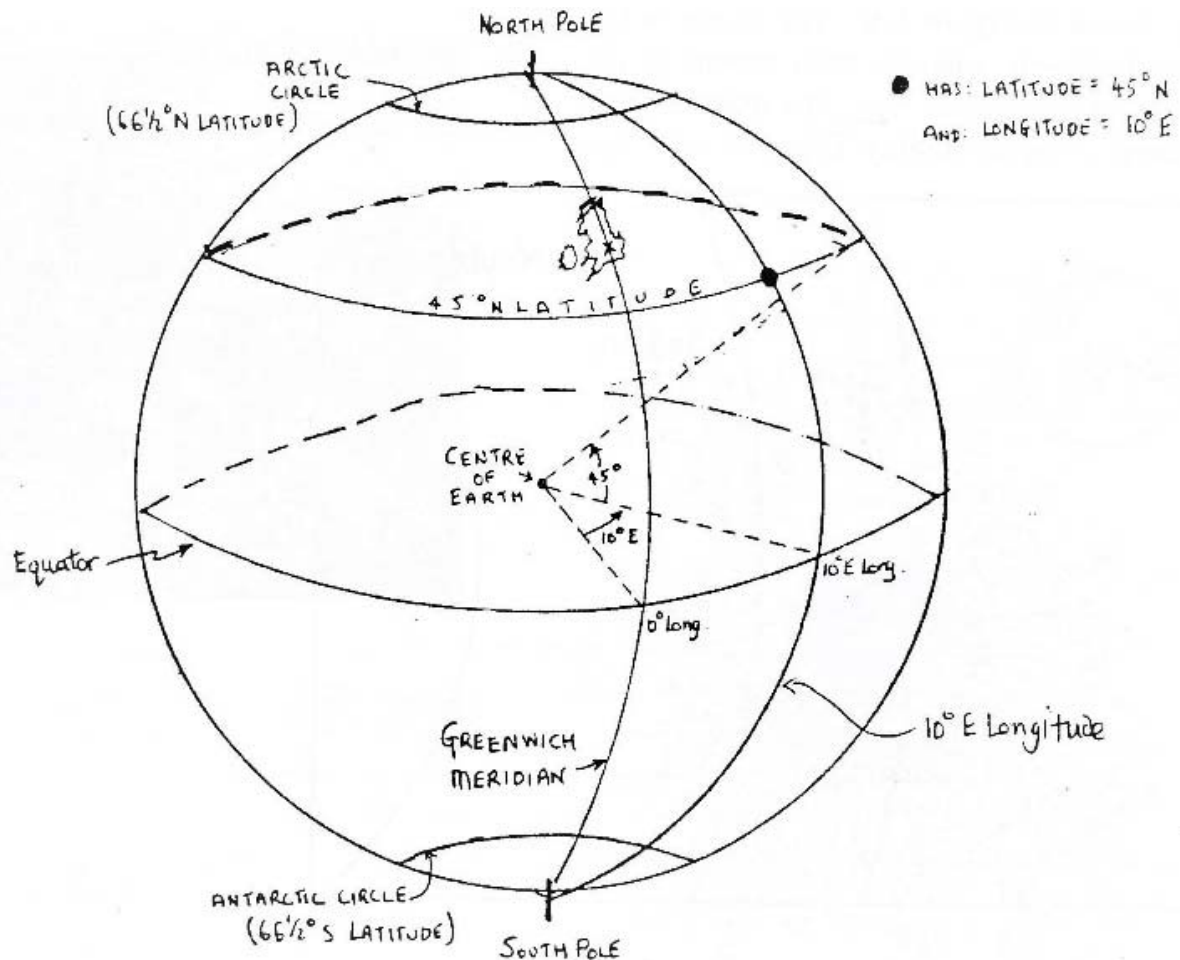 NORTH POLE
ARCTIC
CIRCLE
(66½°N LATITUDE)
● HAS: LATITUDE = 45°N
AND: LONGITUDE = 10°E
45°N LATITUDE
CENTRE
OF
EARTH
45°
10°E
Equator
10°E Long.
0° Long.
GREENWICH
MERIDIAN
10°E Longitude
ANTARCTIC CIRCLE
(66½° S LATITUDE)
SOUTH POLE